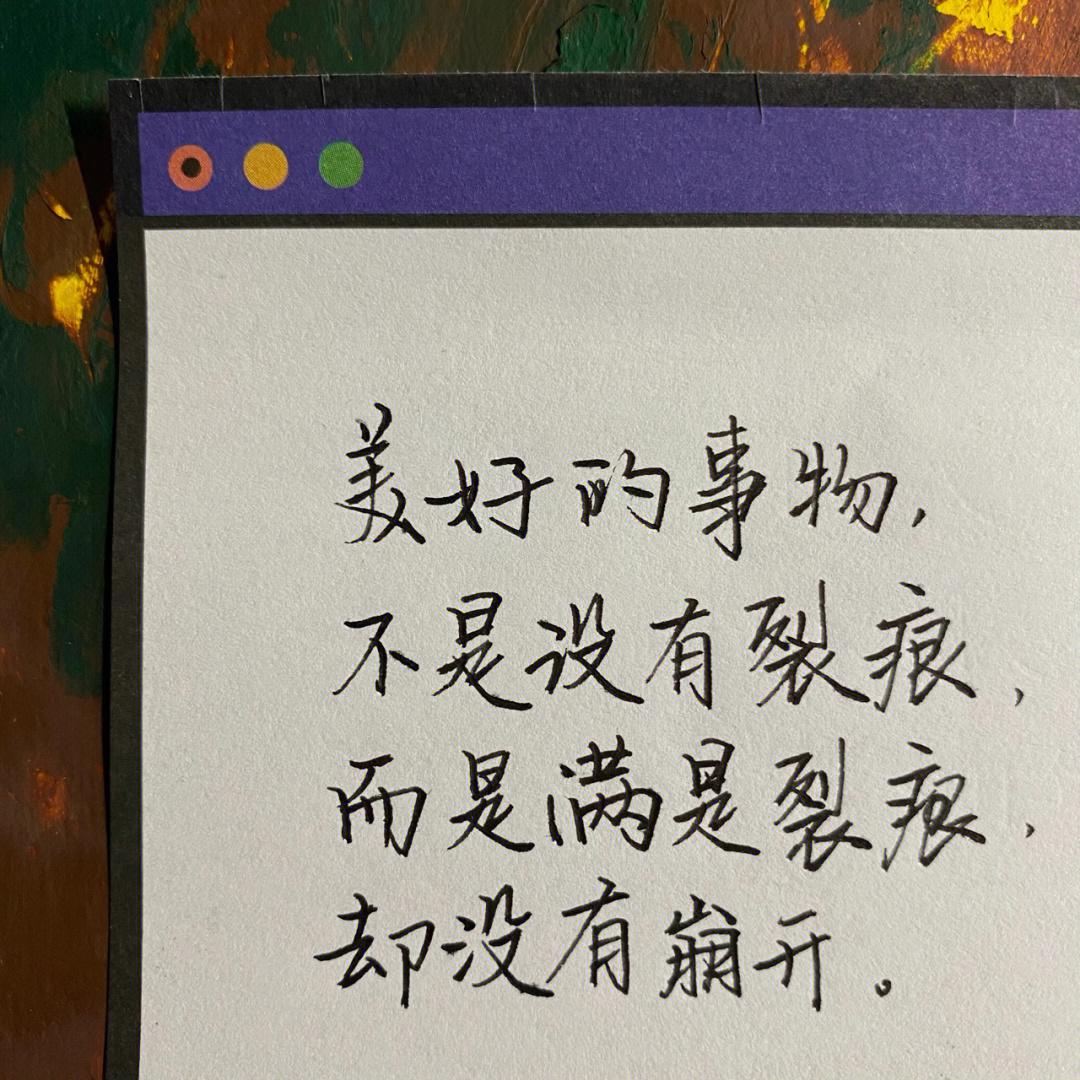 美好的事物，
不是没有裂痕，
而是满是裂痕，
却没有崩开。